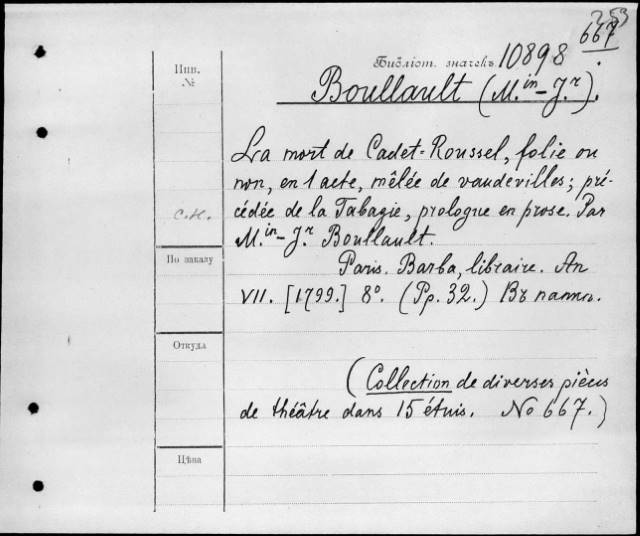 667
Инв.
№
Библіот. значекъ 10898
Boullault (M.in-J.r).
La mort de Cadet-Roussel, folie ou
non, en 1 acte, mêlée de vaudevilles; pré-
cédée de la Tabagie, prologue en prose. Par
M.in-J.r Boullault.
По заказу
Paris. Barba, libraire. An
VII. [1799.] 8º. (Pp. 32.) Въ папкѣ.
Откуда
(Collection de diverses pièces
de théâtre dans 15 étuis. No 667.)
Цѣна